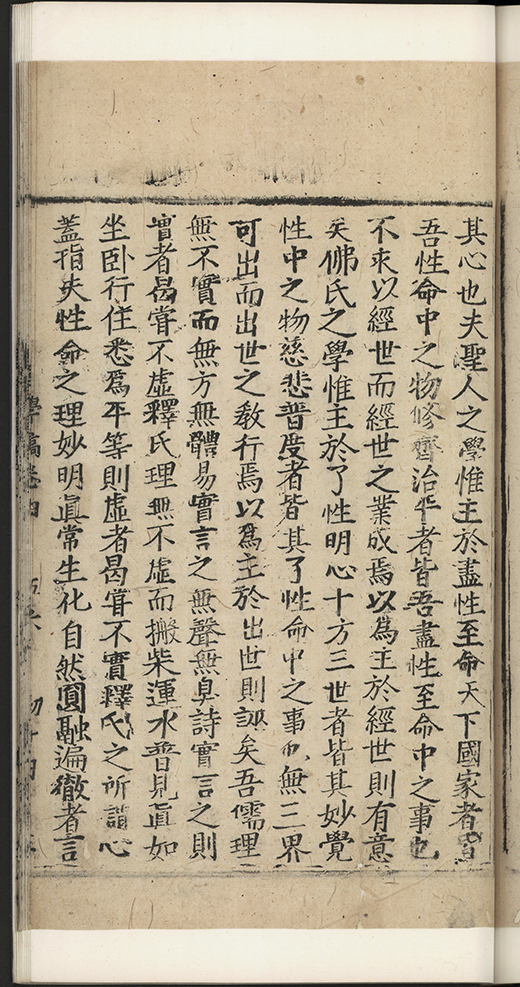 其心也夫聖人之學惟主於盡性至命天下國家者皆
吾性命中之物修齊治平者皆吾盡性至命中之事也
不求以經世而經世之業成焉以為主於經世則有意
矣佛氏之學惟主於了性明心十方三世者皆其妙覺
性中之物慈悲普度者皆其了性命中之事也無三界
可出而出世之教行焉以為主於出世則誣矣吾儒理
無不實而無方無體易實言之無聲無臭詩實言之則
實者曷甞不虛釋氏理無不虛而搬柴運水普見眞如
坐卧行住悉爲平等則虛者曷甞不實釋氏之所謂心
蓋指夫性命之理妙明眞常生化自然圓融遍徹者言
學 卷